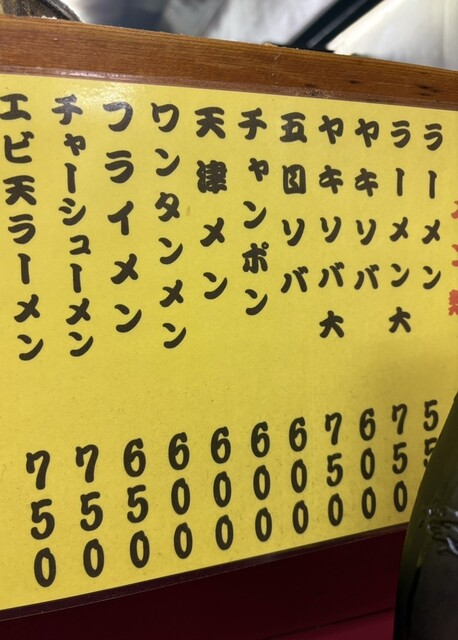 ラーメン 55
ラーメン大 750
ヤキソバ 600
ヤキソバ大 750
五目ソバ 600
チャンポン 600
天津メン 600
ワンタンメン 600
フライメン 650
チャーシューメン 750
エビ天ラーメン 750